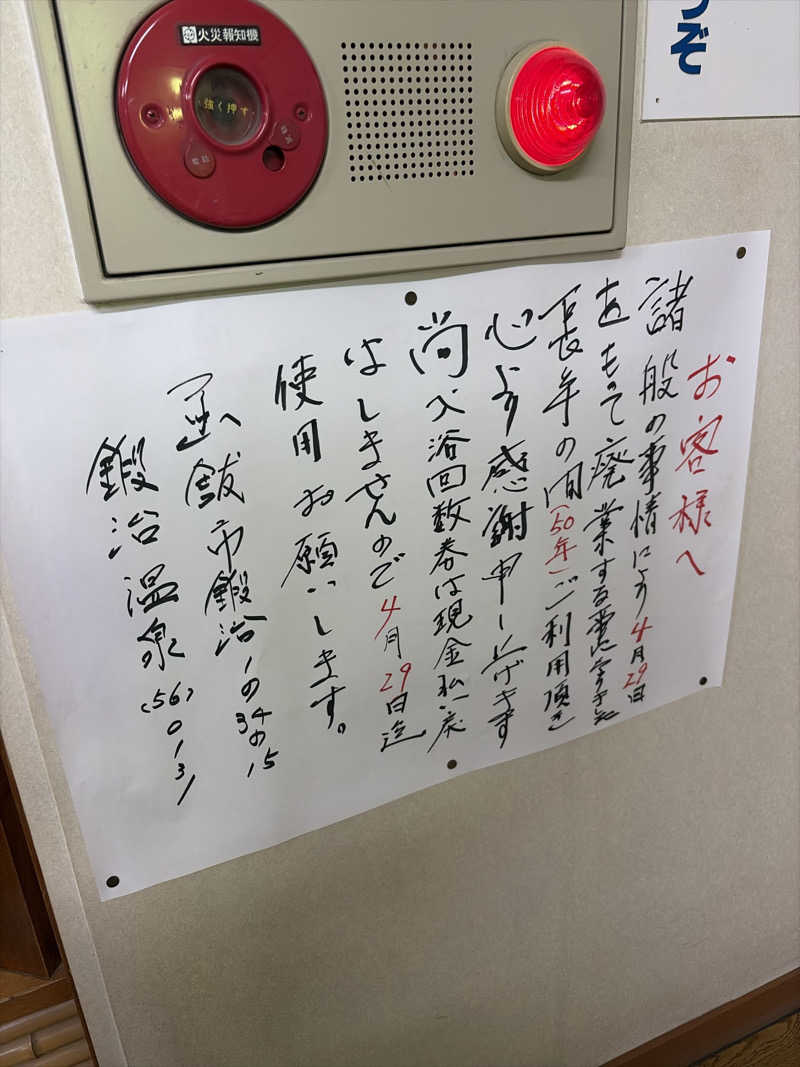 火災報知機
強く押す
うぞ
お客様へ
諸般の事情により4月29日
をもって廃業する事になりました
長年の間(50年)ご利用頂き
心より感謝申し上げます
尚入浴回数券は現金払戻
はしませんので4月29日迄
使用お願いします。
函館市鍛治1の34の15
鍛治温泉(56)0131